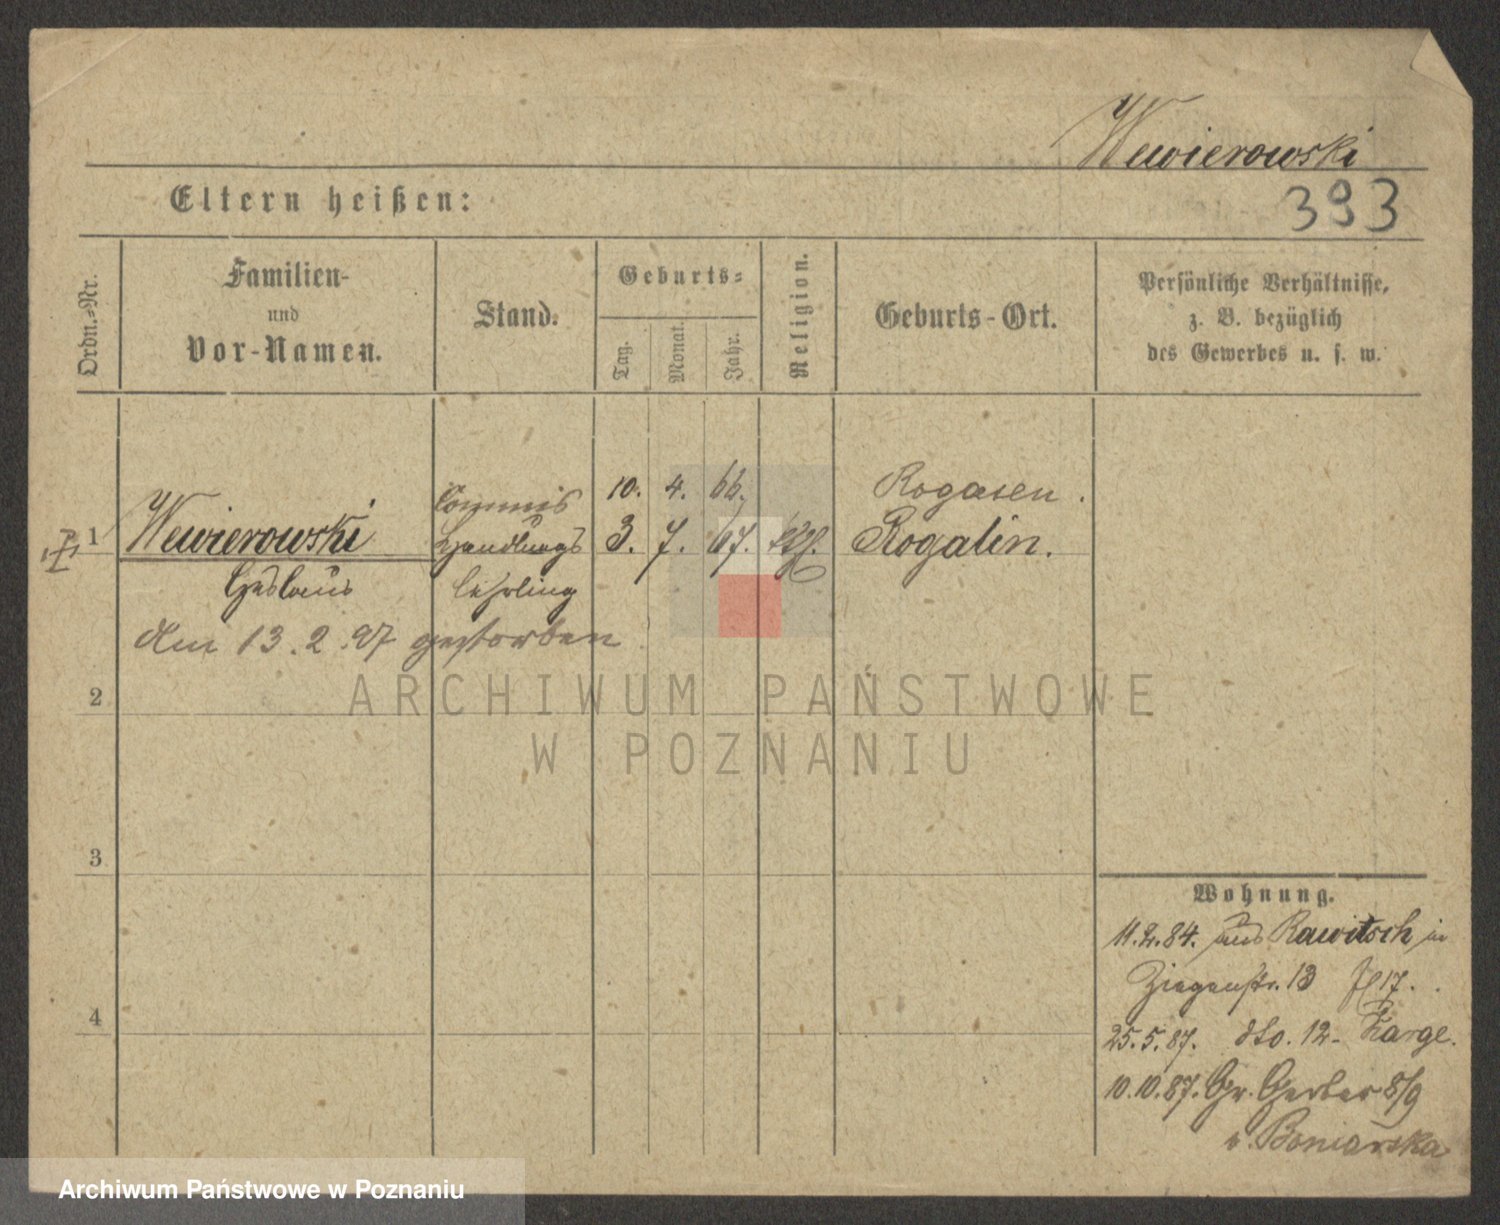 Wewierowski
Eltern heißen:
393
Ordn.-Nr.
Familien-
und
Vor-Namen.
Stand.
Geburts-
Tag.
Monat.
Jahr.
Religion.
Geburts-Ort.
Persönliche Verhältnisse,
z. B. bezüglich
des Gewerbes u. s. w.
Commis 10. 4. 66. Rogasen.
1 Wewierowski Handlungs 3. 7. 67. kth. Rogalin.
Ceslaus lehrling
Am 13.2.97 gestorben
2
3
4
Wohnung.
11.2.84. aus Rawitsch in
Ziegenstr. 13 17.
25.5.87. dto. 12- Zarge.
10.10.87. Gr. Gerber 8/9
b. Boniarska
ARCHIWUM PAŃSTWOWE
W POZNANIU
Archiwum Państwowe w Poznaniu